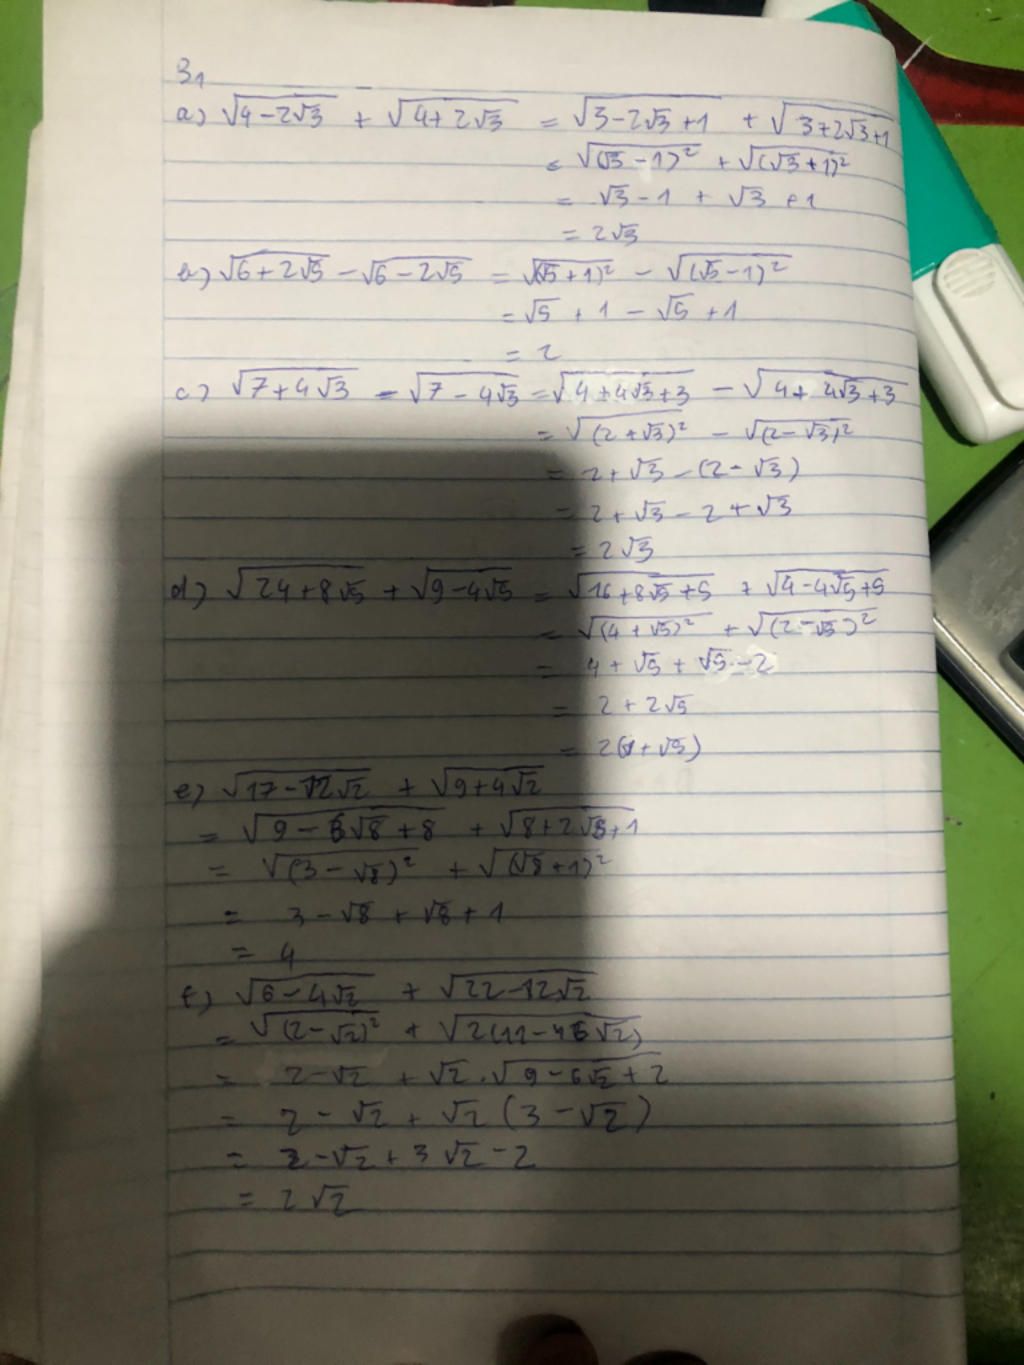 3,
a) √(4-2√3) + √(4+2√3) = √(3-2√3+1) + √(3+2√3+1)
= √((√3-1)²) + √((√3+1)²)
= √3-1 + √3+1
= 2√3
b) √(6+2√5) - √(6-2√5) = √((√5+1)²) - √((√5-1)²)
= √5 + 1 - √5 + 1
= 2
c) √(7+4√3) - √(7-4√3) = √(4+4√3+3) - √(4+4√3+3)
= √((2+√3)²) - √((2-√3)²)
= 2+√3-(2-√3)
= 2+√3-2+√3
= 2√3
d) √(24+8√5) + √(9-4√5) = √(16+8√5+5) + √(4-4√5+5)
= √((4+√5)²) + √((2-√5)²)
= 4+√5+√5-2
= 2+2√5
= 2(1+√5)
e) √(17-12√2) + √(9+4√2)
= √(9-6√8+8) + √(8+2√8+1)
= √((3-√8)²) + √((√8+1)²)
= 3-√8+√8+1
= 4
f) √(6-4√2) + √(22-12√2)
= √((2-√2)²) + √(2(11-6√2))
= 2-√2 + √2.√(9-6√2+2)
= 2-√2+√2(3-√2)
= 2-√2+3√2-2
= 2√2